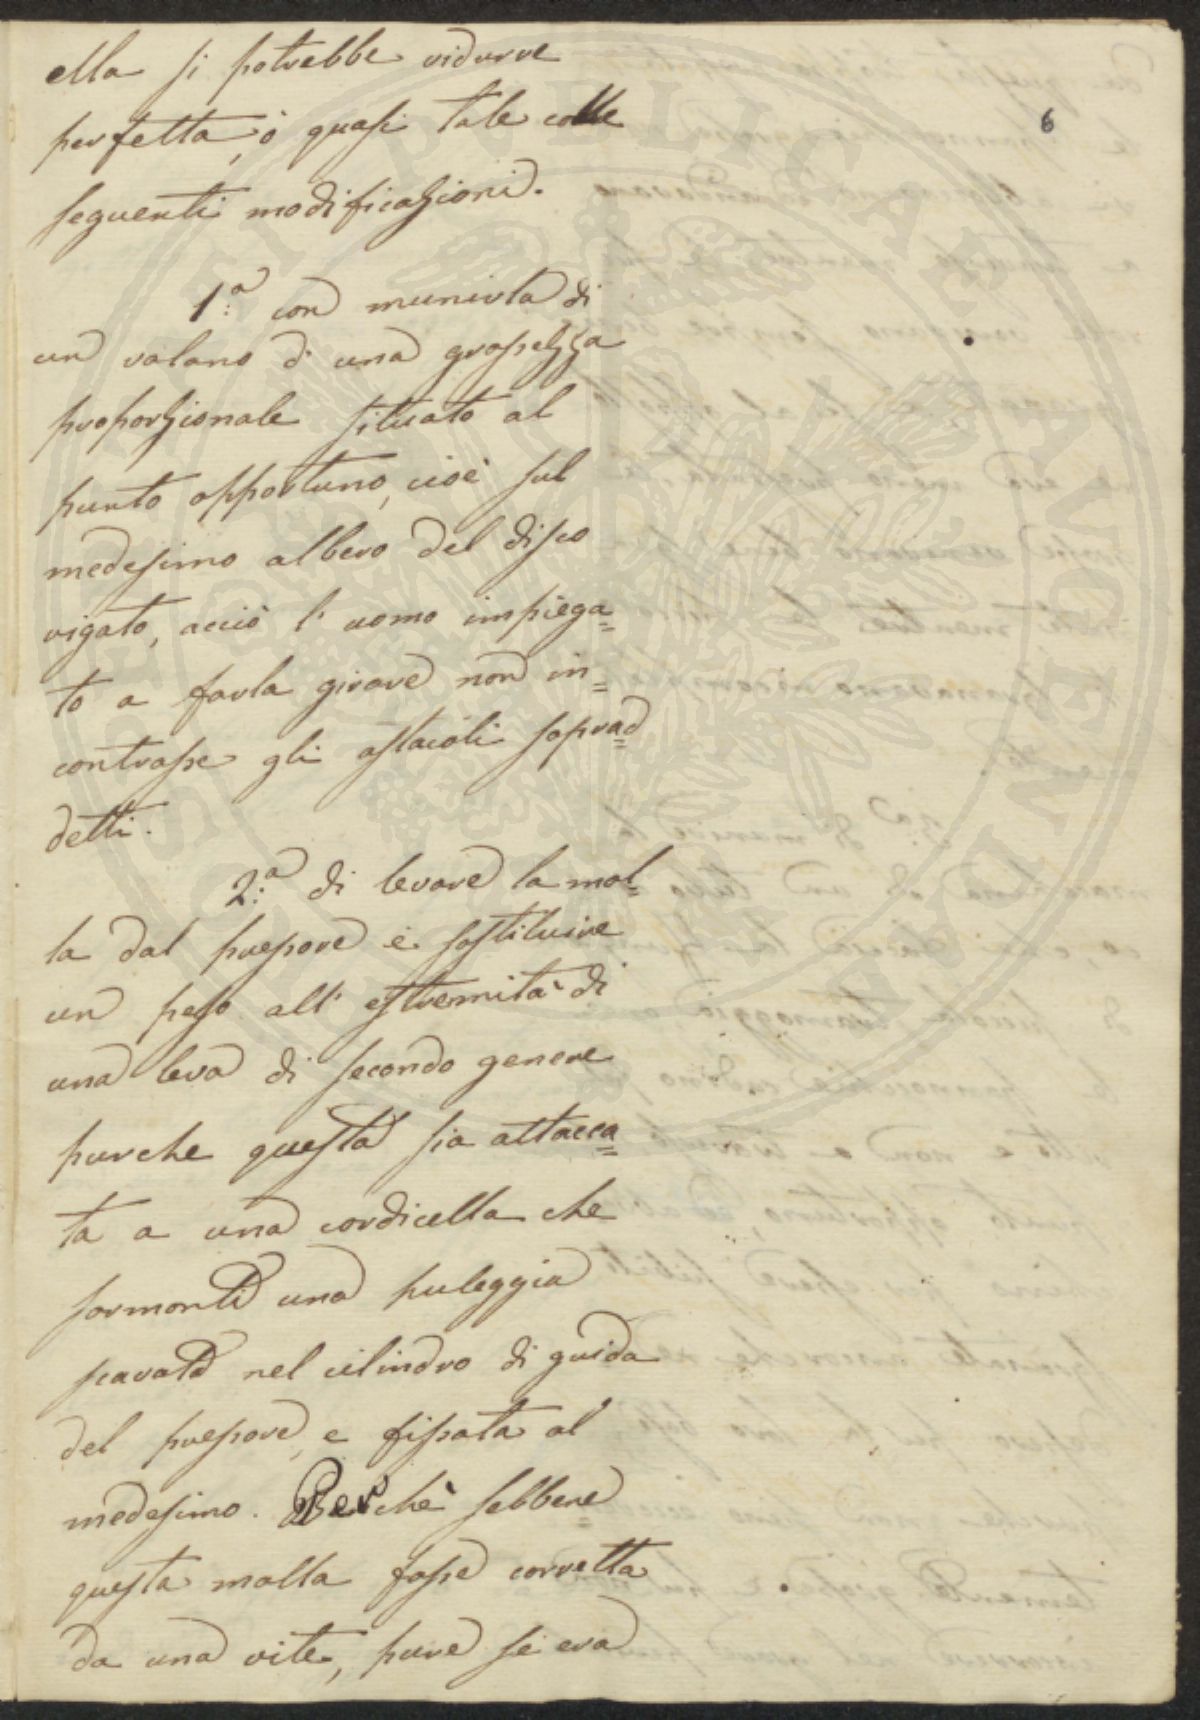 6
ella si potrebbe ridurre
perfetta, ò quasi tale colle
seguenti modificazioni.
1.ª con munirla di
un volano di una grossezza
proporzionale situato al
punto opportuno, cioè sul
medesimo albero del disco
rigato, acciò l'uomo impiega=
to a farla girare non in=
contrasse gli ostacoli soprad=
detti.
2.ª di levare la mol=
la dal pressore e sostituire
un peso all'estremità di
una leva di secondo genere
purche questa sia attacca=
ta a una cordicella che
sormonti una puleggia
scavata nel cilindro di guida
del pressore, e fissata al
medesimo. Perchè sebbene
questa molla fosse corretta
da una vite, pure se era